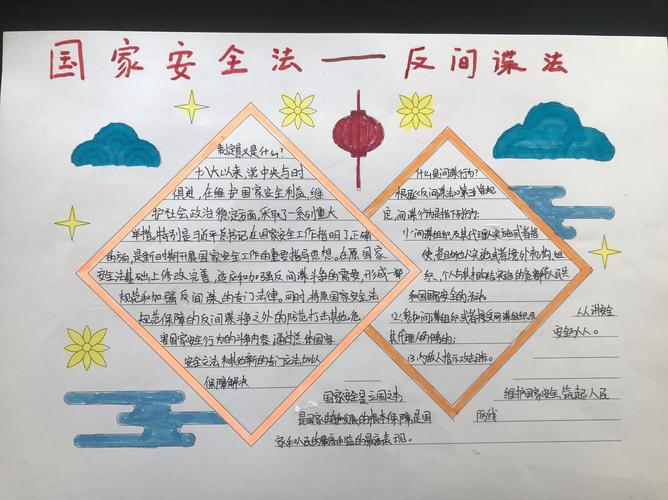 国家安全法——反间谍法
制定意义是什么?
十八大以来,党中央与时
俱进,在维护国家安全利益,维
护社会政治稳定方面,采取了一系列重大
举措,特别是习近平总书记在国家安全工作指明了正确
方向,是新时期开展国家安全工作的重要指导思想。在原国家
安全法基础上修改完善,适应和加强反间谍斗争的需要,形成一部
规范和加强反间谍的专门法律。同时,将原国家安全法
规范保障的反间谍之外的防范打击其他危
害国家安全行为的内容,通过总的国家
安全立法和其他新的专门立法加以
保障解决
什么是间谍行为?
根据《反间谍法》第
定,间谍行为是指下列行为:
(1)间谍组织及其代理人实施或者指
使者他人实施或者境外机构、组
织、个人与其相勾结实施的危害中华人民共
和国国家安全的活动。
(2)参加间谍组织或者接受间谍组织及
其代理人的任务的;
(3)为敌人指示攻击目标。
人人讲安全
安全为人人。
国家安全是立国之本
是国家生存和发展的根本保障是国
家和人民的最高利益的最高表现。
维护国家安全,筑起人民
防线